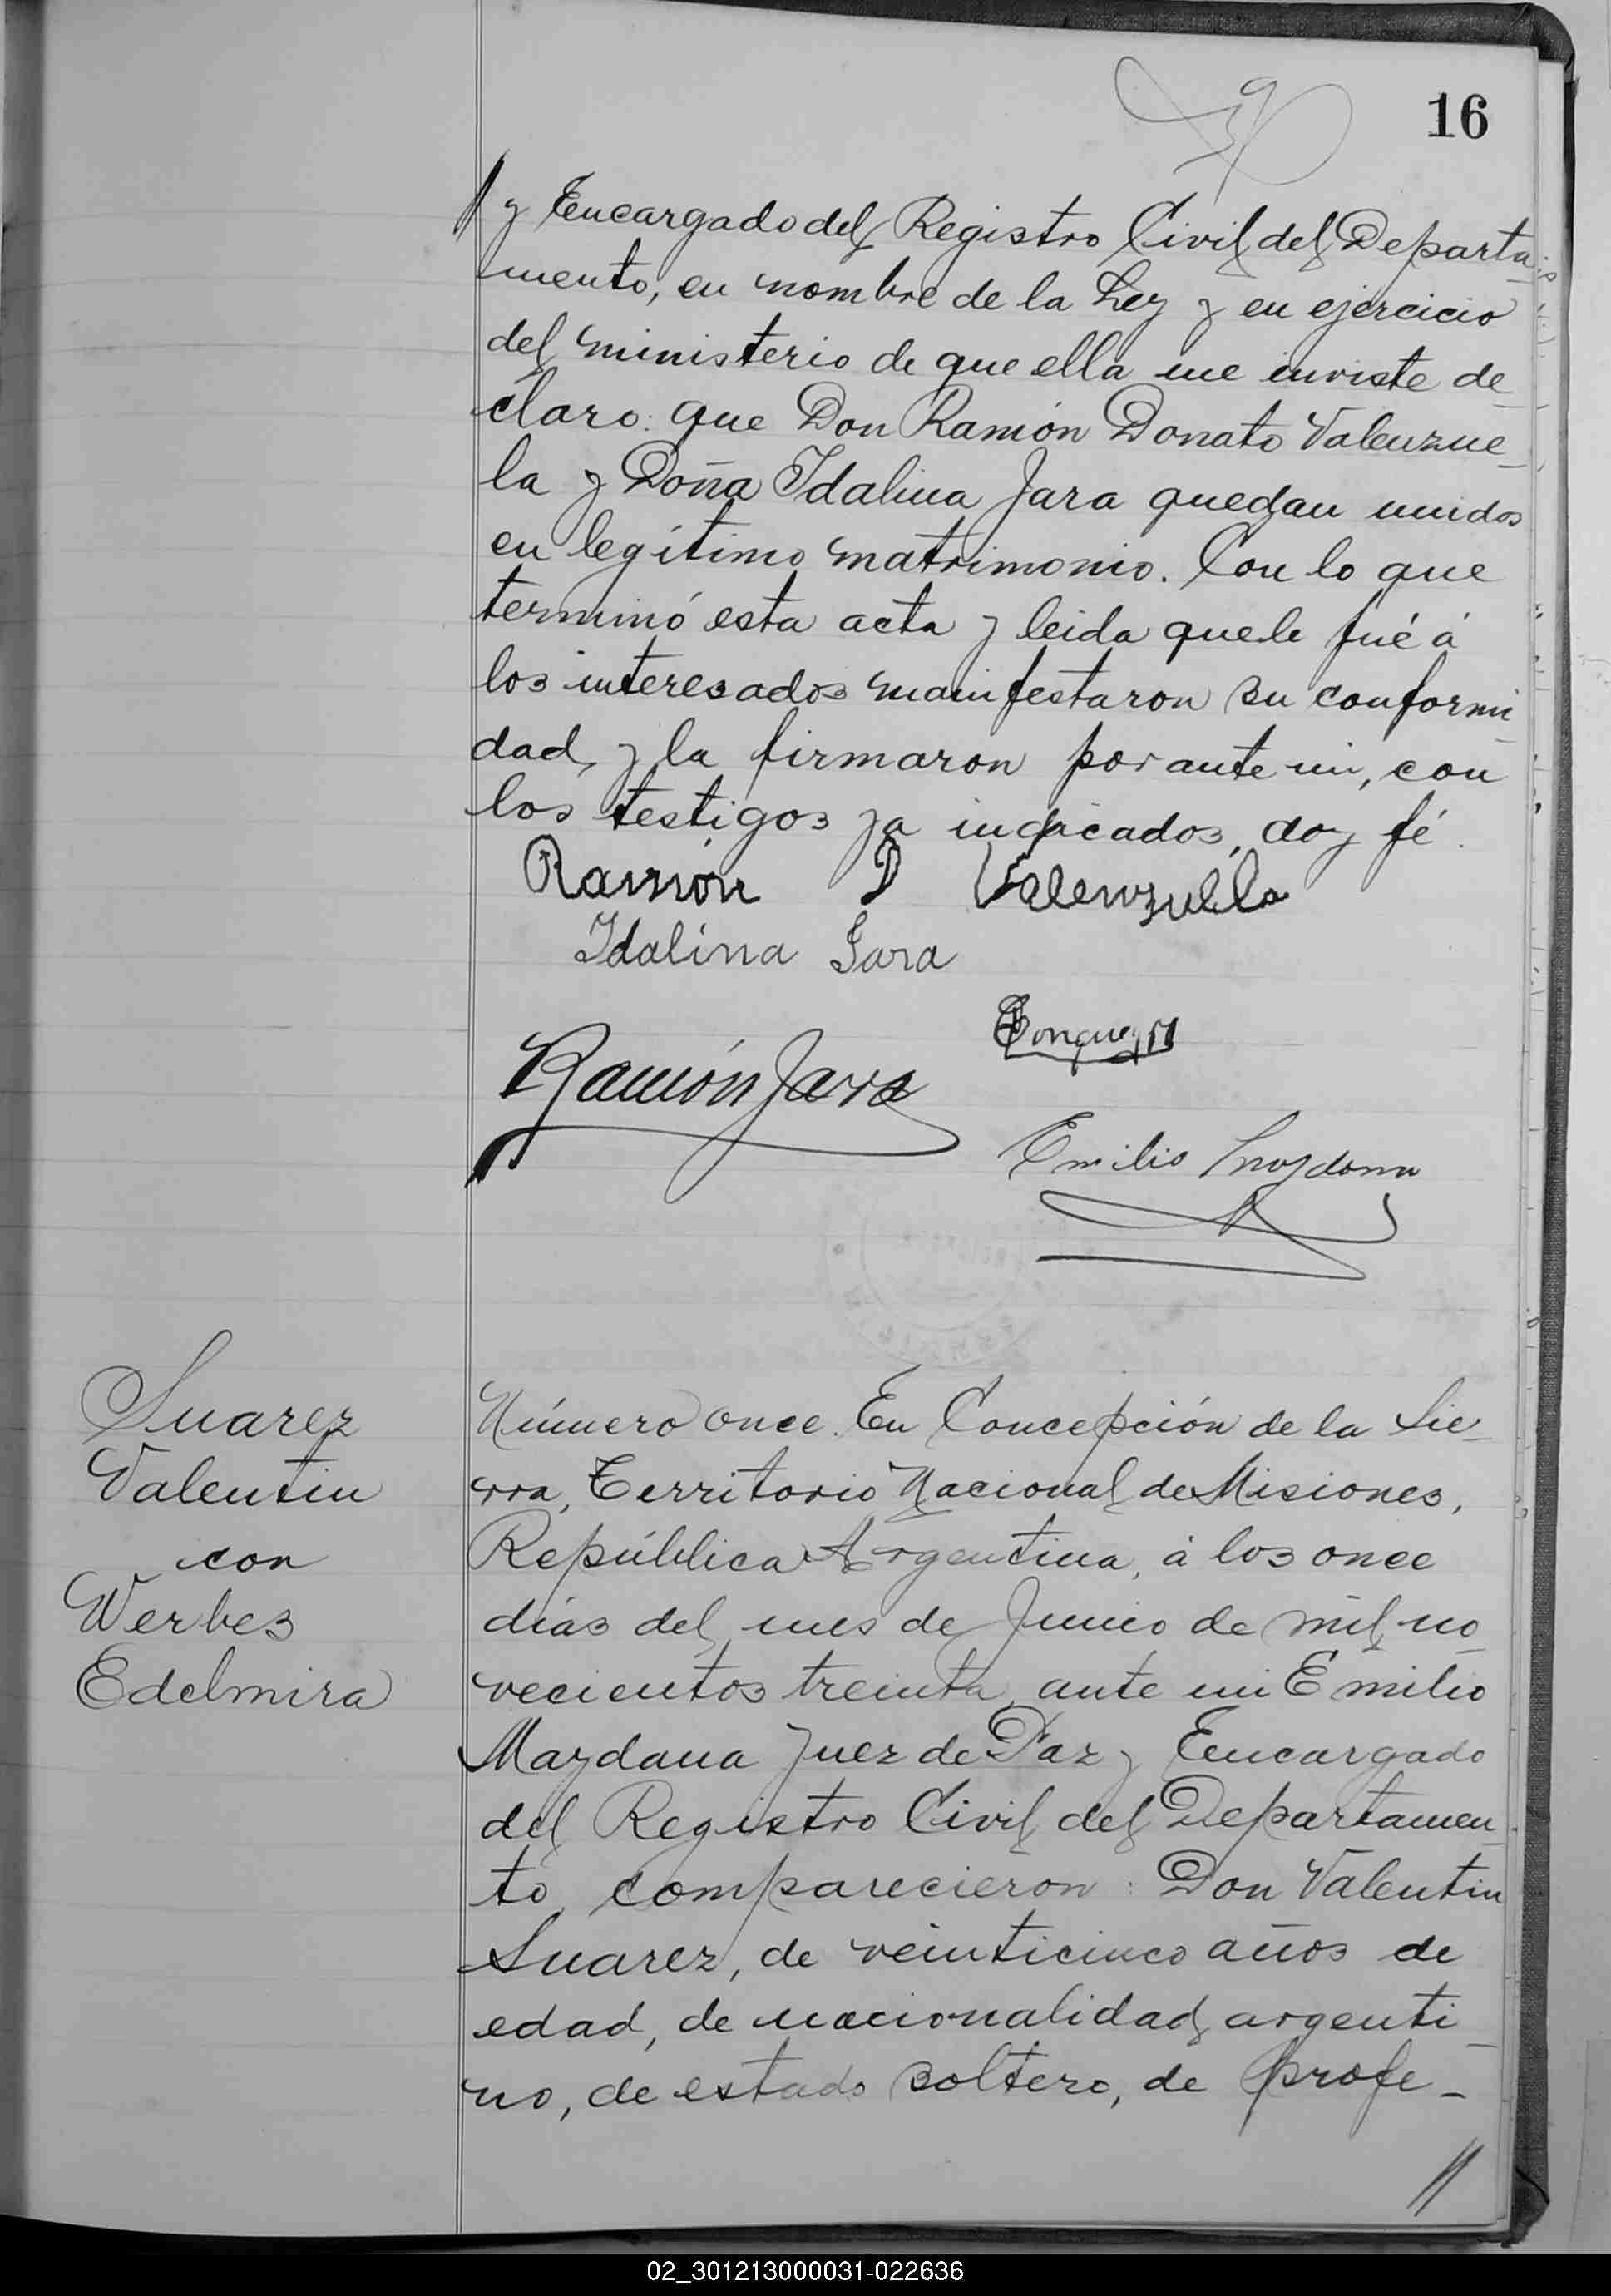 16
y Encargado del Registro Civil del Departa-
mento, en nombre de la Ley y en ejercicio
del ministerio de que ella me inviste de-
claro: que Don Ramón Donato Valenzue-
la y Doña Idalina Jara quedan unidos
en legítimo matrimonio. Con lo que
terminó esta acta y leida que le fué á
los interesados manifestaron su conformi-
dad, y la firmaron por ante mi, con
los testigos ya indicados, doy fé.
Ramón D Valenzuella
Idalina Jara
Ramón Jara
Emilio Maydana
Suarez
Valentin
con
Werbes
Edelmira
Número once. En Concepción de la Sie-
rra, Territorio Nacional de Misiones,
República Argentina, á los once
días del mes de Junio de mil no-
vecientos treinta, ante mi Emilio
Maydana Juez de Paz y Encargado
del Registro Civil del Departamen-
to, comparecieron: Don Valentin
Suarez, de veinticinco años de
edad, de nacionalidad argenti-
no, de estado soltero, de profe-
//
02_301213000031-022636